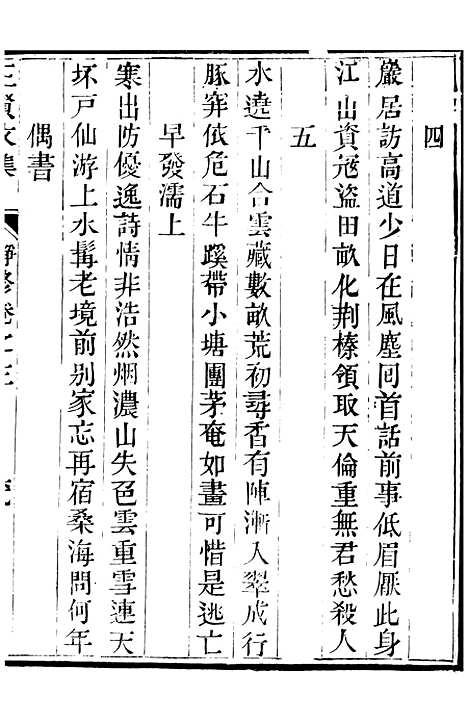 四
嚴居訪高道少日在風塵回首話前事低眉厭此身
江山資冦盜田畝化荆榛領取天倫重無君愁殺人
五
水遶千山合雲藏數畝荒初尋香有陣漸入翠成行
豚穽依危石牛蹊帶小塘團茅奄如畫可惜是逃亡
早發濡上
寒出防優逸詩情非浩然烟濃山失色雲重雪連天
坏戸仙游上水髯老境前别家忘再宿桑海問何年
偶書
三賢文集
靜修卷之三